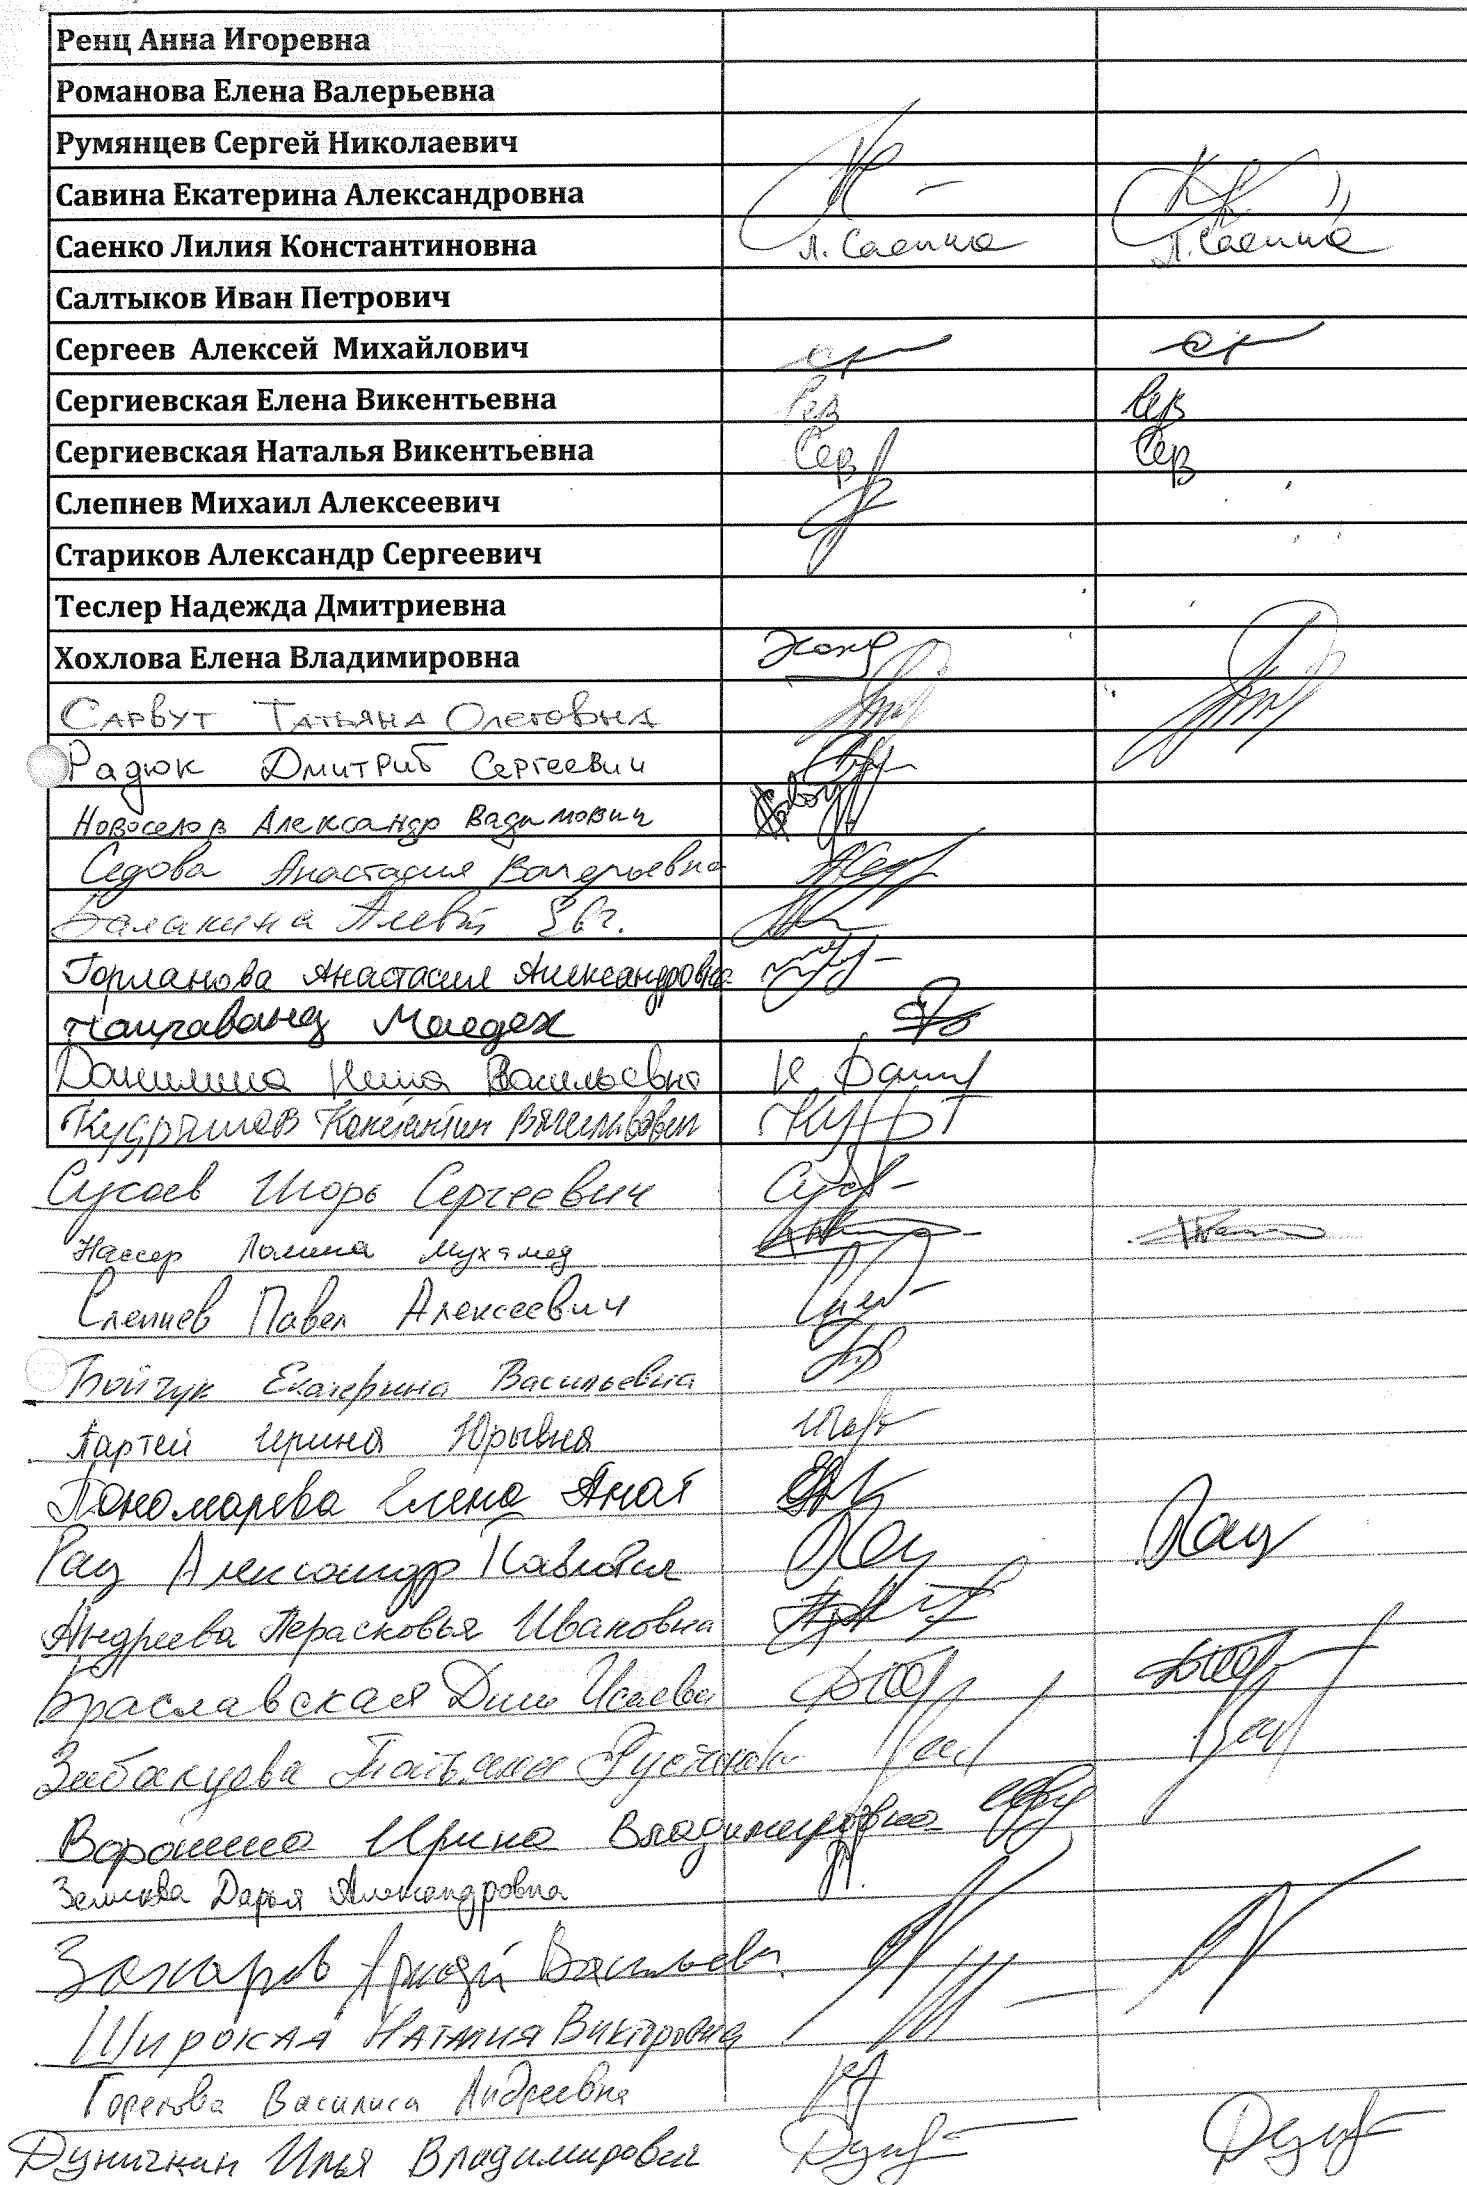 Ренц Анна Игоревна
Романова Елена Валерьевна
Румянцев Сергей Николаевич
Савина Екатерина Александровна
Саенко Лилия Константиновна Л. Саенко Л. Саенко
Салтыков Иван Петрович
Сергеев Алексей Михайлович
Сергиевская Елена Викентьевна Сер Сер
Сергиевская Наталья Викентьевна Сер Сер
Слепнев Михаил Алексеевич
Стариков Александр Сергеевич
Теслер Надежда Дмитриевна
Хохлова Елена Владимировна
Сарвут Татьяна Олеговна
Радюк Дмитрий Сергеевич
Новоселов Александр Вадимович
Седова Анастасия Валерьевна
Балакина Алевт Евг.
Горланова Анастасия Александровна
Данилина Нина Васильевна
Кудряшов Константин Вячеславович
Сусоев Игорь Сергеевич
Нассер Полина Мухамед
Слепнев Павел Алексеевич
Бойчук Екатерина Васильевна
Партей Ирина Юрьевна
Пономарева Елена Анат
Рац Александр Павлович Рац
Андреева Перасковья Ивановна
Браславская Дина Исаевна
Забалуева Татьяна
Воронина Ирина Владимировна
Дарья Александровна
Захаров Аркадий Васильевич
Широкая Наталия Викторовна
Горелова Василиса Андреевна
Дуничкин Илья Владимирович